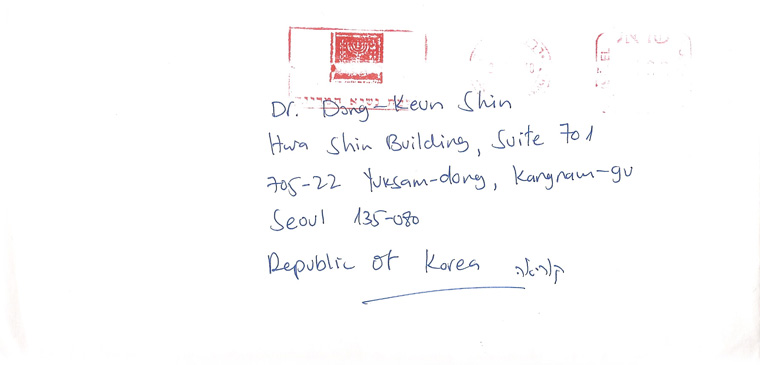 Dr. Dong-Keun Shin
Hwa Shin Building, Suite 701
705-22 Yuksam-dong, Kangnam-gu
Seoul 135-080
Republic of Korea קוריאה